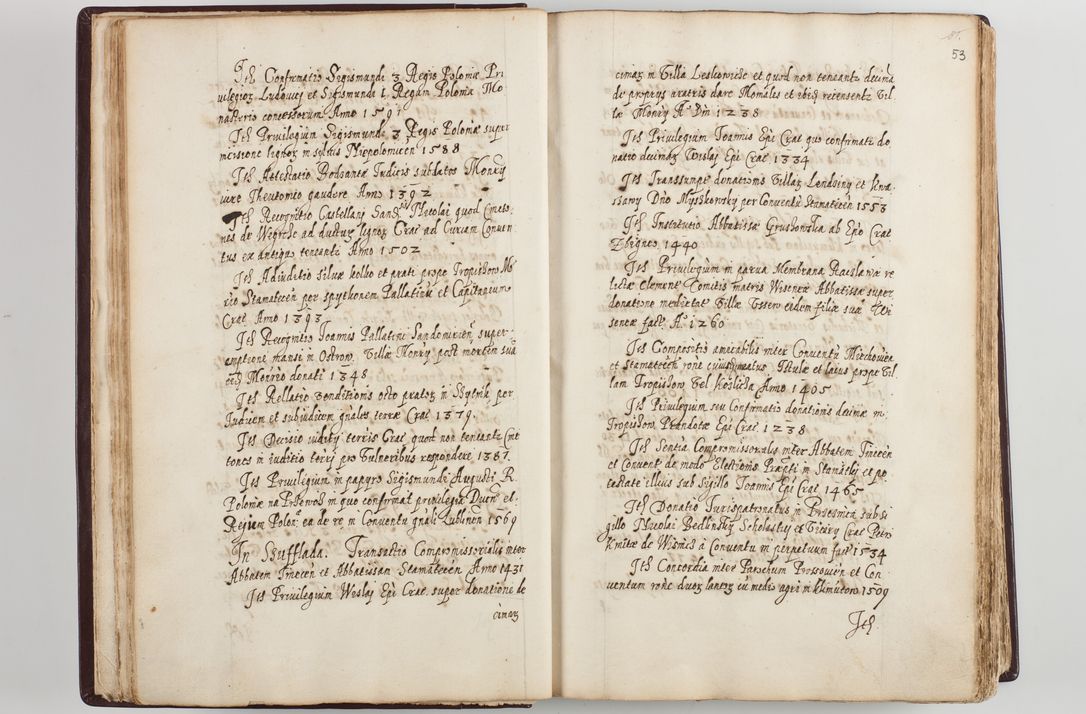 Ith Confirmatio Sigismundi 3 Regis Poloniæ Pri
uilegioȝ Ludouici et Sigismundi 1. Regum Poloniæ Mo
nasterio concessorum Anno 1591
Ith Priuilegium Sigismundi 3 Regis Poloniæ super
incisione lignoȝ in syluis Niepolomicen 1588
Ith Attestatio Bodsantæ Iudicis
iure Theutonico gaudere Anno 1392
Ith Recognitio Castellani Sand. Nicolai quod Cmeto
nes de Wegrzce ad ductuȝ lignoȝ Crac ad Curiam Conuen
tus ex antiquo tenentur Anno 1502
Ith Adiuditio siluæ kolko et prati prope Tropischow Mo
rio Staniatecen per spythonem Pallatinu et Capitaneum
Crac Anno 1393
Ith Recognitio Ioannis Pallatini Sandomirien super
emptione mansi in Ostrow Villa Monrÿ post mortem suã
eidȝ Monrio donati 1348
Ith Rellatio Venditionis octo pratoȝ in per
Iudicem et subiudicem gnales terræ Crac 1379.
Ith Decisio iudicÿ terris Crac quod non tenantur Cme
tones in iuditio terrj pro Vulneribus respondere 1387.
Ith Priuilegium in papyro Sigismundi Augusti R
Poloniæ na in quo confirmat priuilegia Ducũ et
Regum Polon ea de re in Conuentu gnali Lublinen 1569
In Scufflada. Transactio Compromissorialis inter
Abbatem Tinecen et Abbatissan Staniatecen Anno 1431
Ith Priuilegium Wislaj Epi Crac. super donatione de
cimaȝ
53
cimaȝ in Villa Leskowiec et quod non teneantur decimã
de proprÿs aratris dare Moniales et ibiȝ recensentur Vil
læ Monrÿ A. Dni 1238
Ith Priuilegium Ioannis Epi Crac quo confirmatr do
natio decimaȝ Wislaj Epi Crac 1334
Ith Transsumpt donationis Villaȝ Landsiny et kwa
ssowy Dno Myszkowsky per Conuentũ Staniatecen 1553
Ith Institutio Abbatissæ Gruskowska ab Epo Crac
Zbigneo 1440
Ith Priuilegium in parua Membrana Raeslauiæ re
lictæ Clement Comitis matris Wisenæ Abbatissæ super
donatione medietat Villæ eidem filiæ suæ Wi
senæ fact A. 1260
Ith Compositio amicabilis inter Conuentũ Miechouien
et Staniatecen rone cuiusdam Insulæ et lacus prope Vil
lam Tropischow Vel kozlicza Anno 1405
Ith Priuilegium seu Confirmatio donationis decimæ in
Tropischow Prandotæ Epi Crac 1238
Ith Sentia Compromissorialis inter Abbatem Tinecen
et Conuent de modo Electionis Præpti in Staniatkj et po
testate illius sub Sigillo Ioannis Epi Crac 1465
Ith Donatio Iurispatronatus in sub si
gillo Nicolai Bedlinsky Scholastici et Vicarÿ Crac Petro
Kmitæ de Wisnicz à Conuentu in perpetuum fact 1534
Ith Concordia inter Parochum Brzosouien et Con
uentum rone duoȝ laneoȝ eũ medio agri in klimutow 1509
Ith